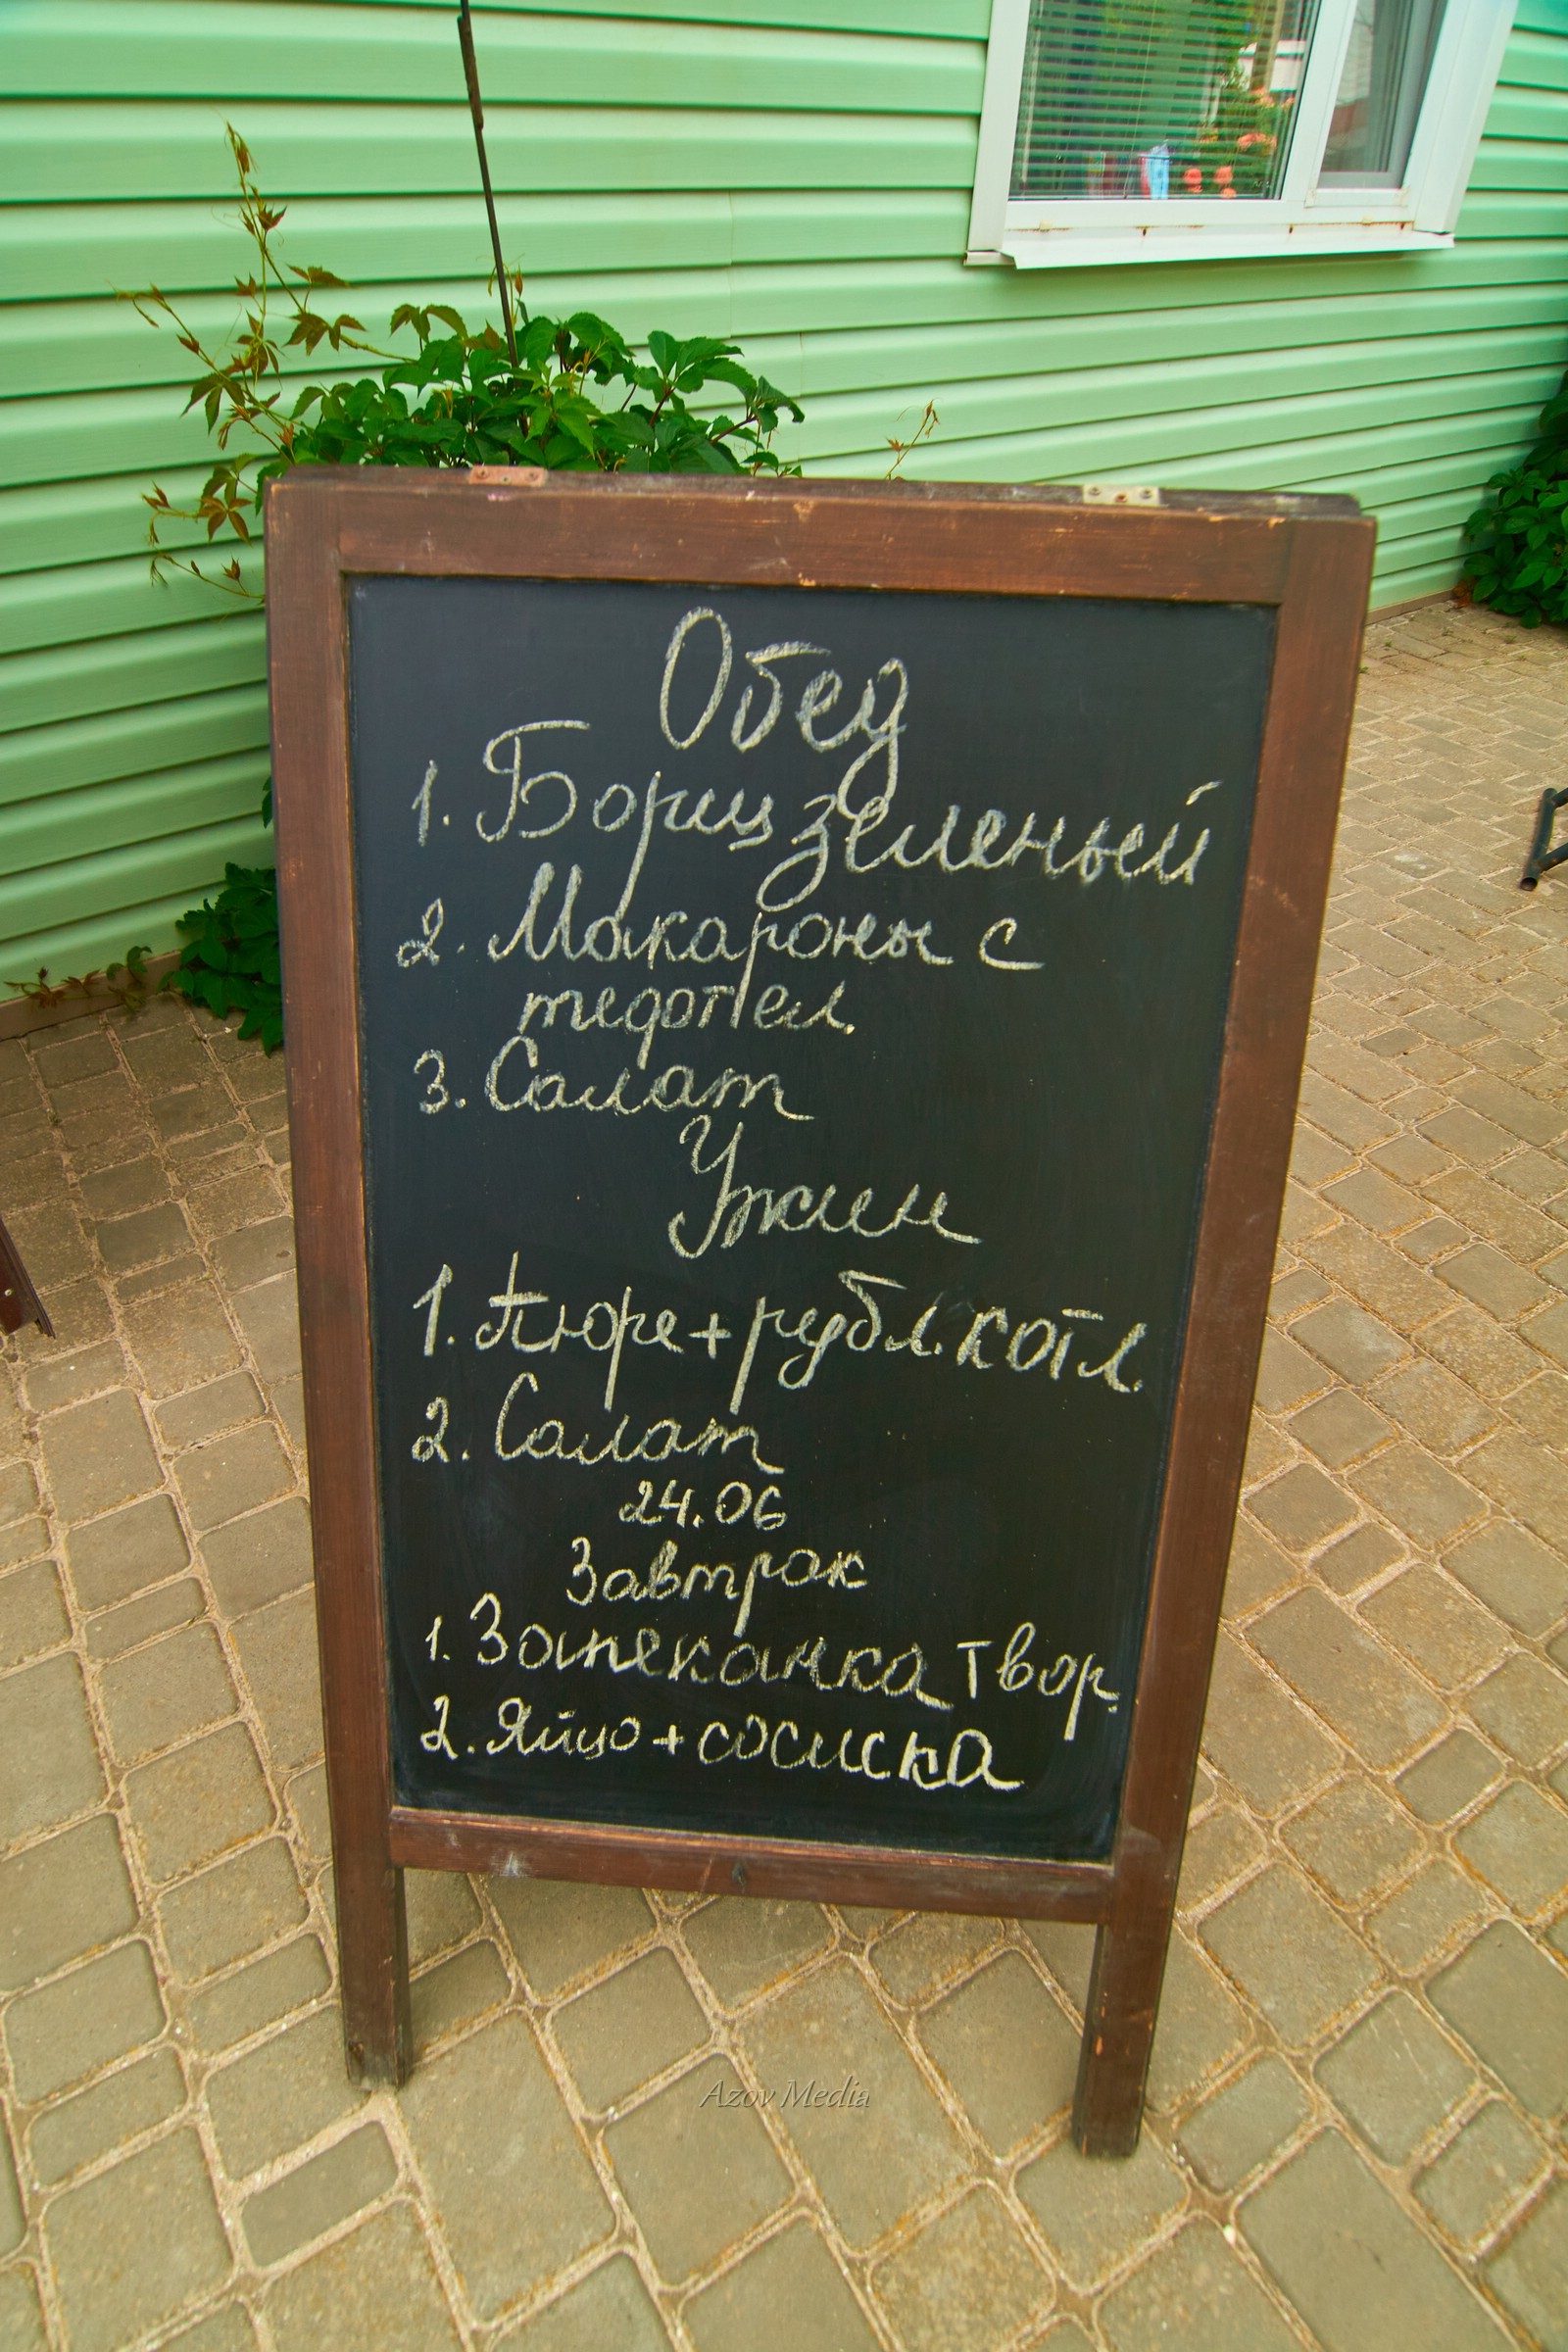 Обед
1. Борщ зеленый
2. Макароны с
тедотел.
3. Салат
Ужин
1. Пюре + рубл. котл.
2. Салат
24.06
Завтрак
1. Запеканка твор.
2. Яйцо + сосиска
Azov Media